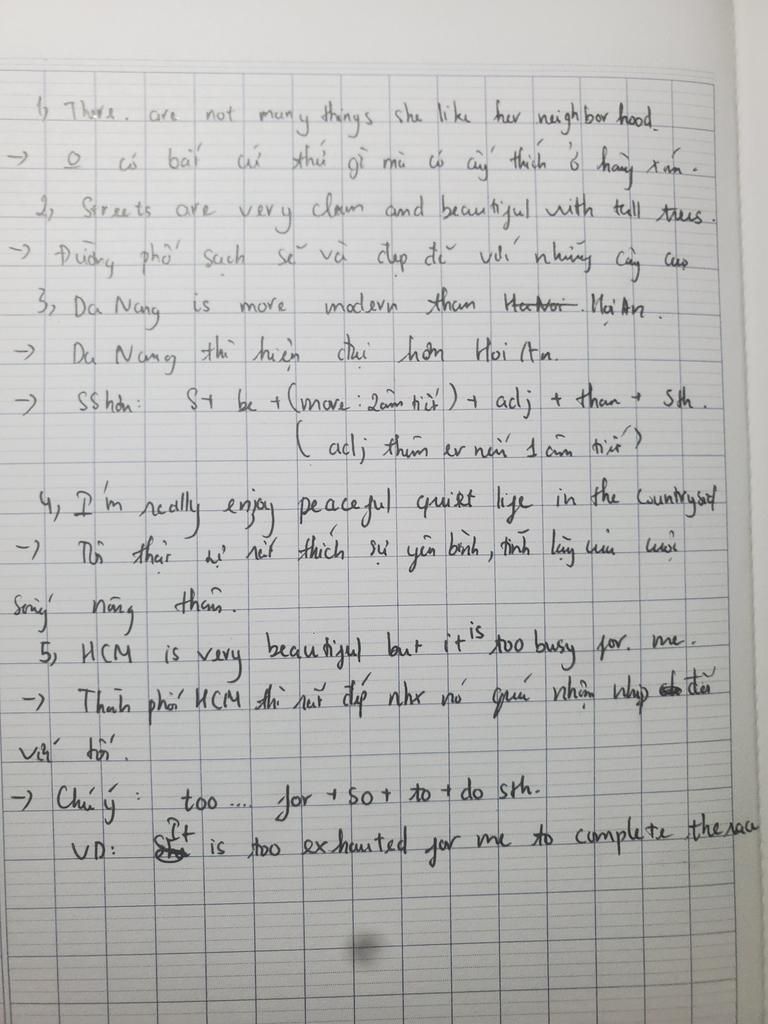 1, There. are not many things she like her neighborhood.
-> 0 có bất cứ thứ gì mà cô ấy thích ở hàng xóm.
2, Streets are very clean and beautiful with tall trees.
-> Đường phố sạch sẽ và đẹp đẽ với những cây cao
3, Da Nang is more modern than Hoi An.
-> Da Nang thì hiện đại hơn Hoi An.
-> SS hơn: S + be + (more: 2 âm tiết) + adj + than + Sth.
( adj thêm er nếu 1 âm tiết )
4, I'm really enjoy peaceful quiet life in the countryside
-> Tôi thật sự rất thích sự yên bình, tĩnh lặng của cuộc
sống nông thôn.
5, HCM is very beautiful but it is too busy for. me.
-> Thành phố HCM thì rất đẹp nhx nó quá nhộn nhịp đối
với tôi.
-> Chú ý: too ... for + so + to + do sth.
VD: It is too exhausted for me to complete the race